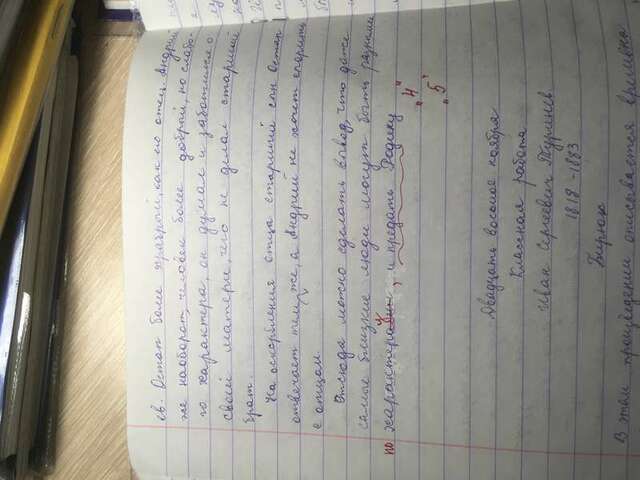 ев. Остап более храбрый, как его отец. Андрий
же наоборот, человек более добрый, но слабо-
го характера, он думал и заботился о
своей матери, чего не делал старший
брат.
На оскорбления отца старший сын Остап
отвечает тем же, а Андрий не хочет спорить
с отцом.
Отсюда можно сделать вывод, что даже
самые близкие люди могут быть разными
по характеру, и предать Родину
"4"
"5"
Двадцать восьмое ноября
Классная работа
Иван Сергеевич Тургенев
1818 - 1883
Бирюк
В этом произведении описывается